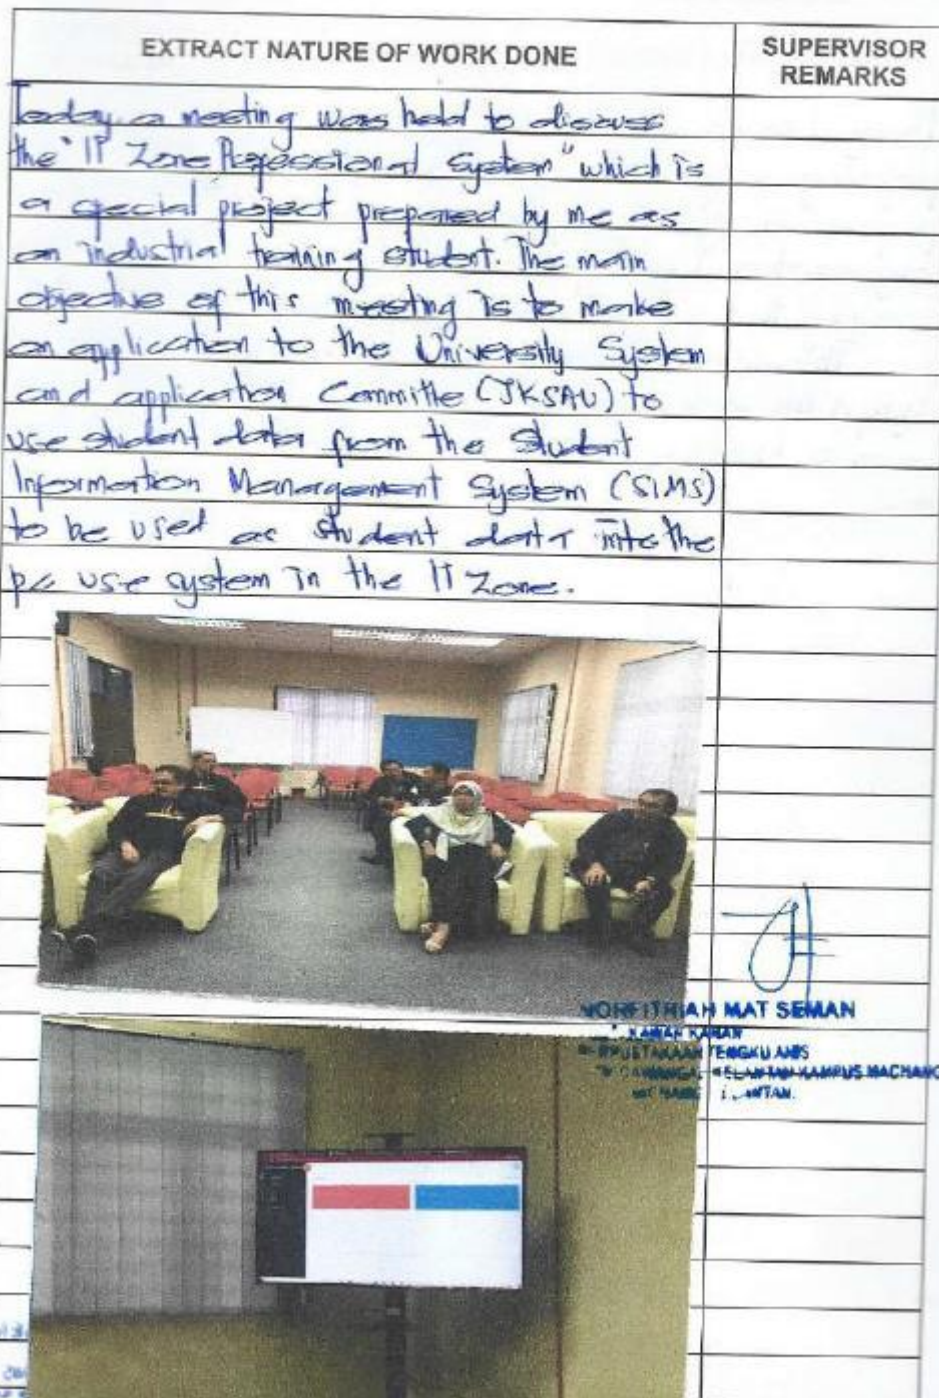 EXTRACT NATURE OF WORK DONE
SUPERVISOR
REMARKS
Today a meeting was held to discuss
the "IT Zone Professional System" which is
a special project prepared by me as
an industrial training student. The main
objective of this meeting is to make
an application to the University System
and application Committe (JKSAU) to
use student data from the Student
Information Management System (SIMS)
to be used as student data into the
pc use system in the IT Zone.
NORFITHIAH MAT SEMAN
TENGKU ANIS
KAMPUS MACHANG